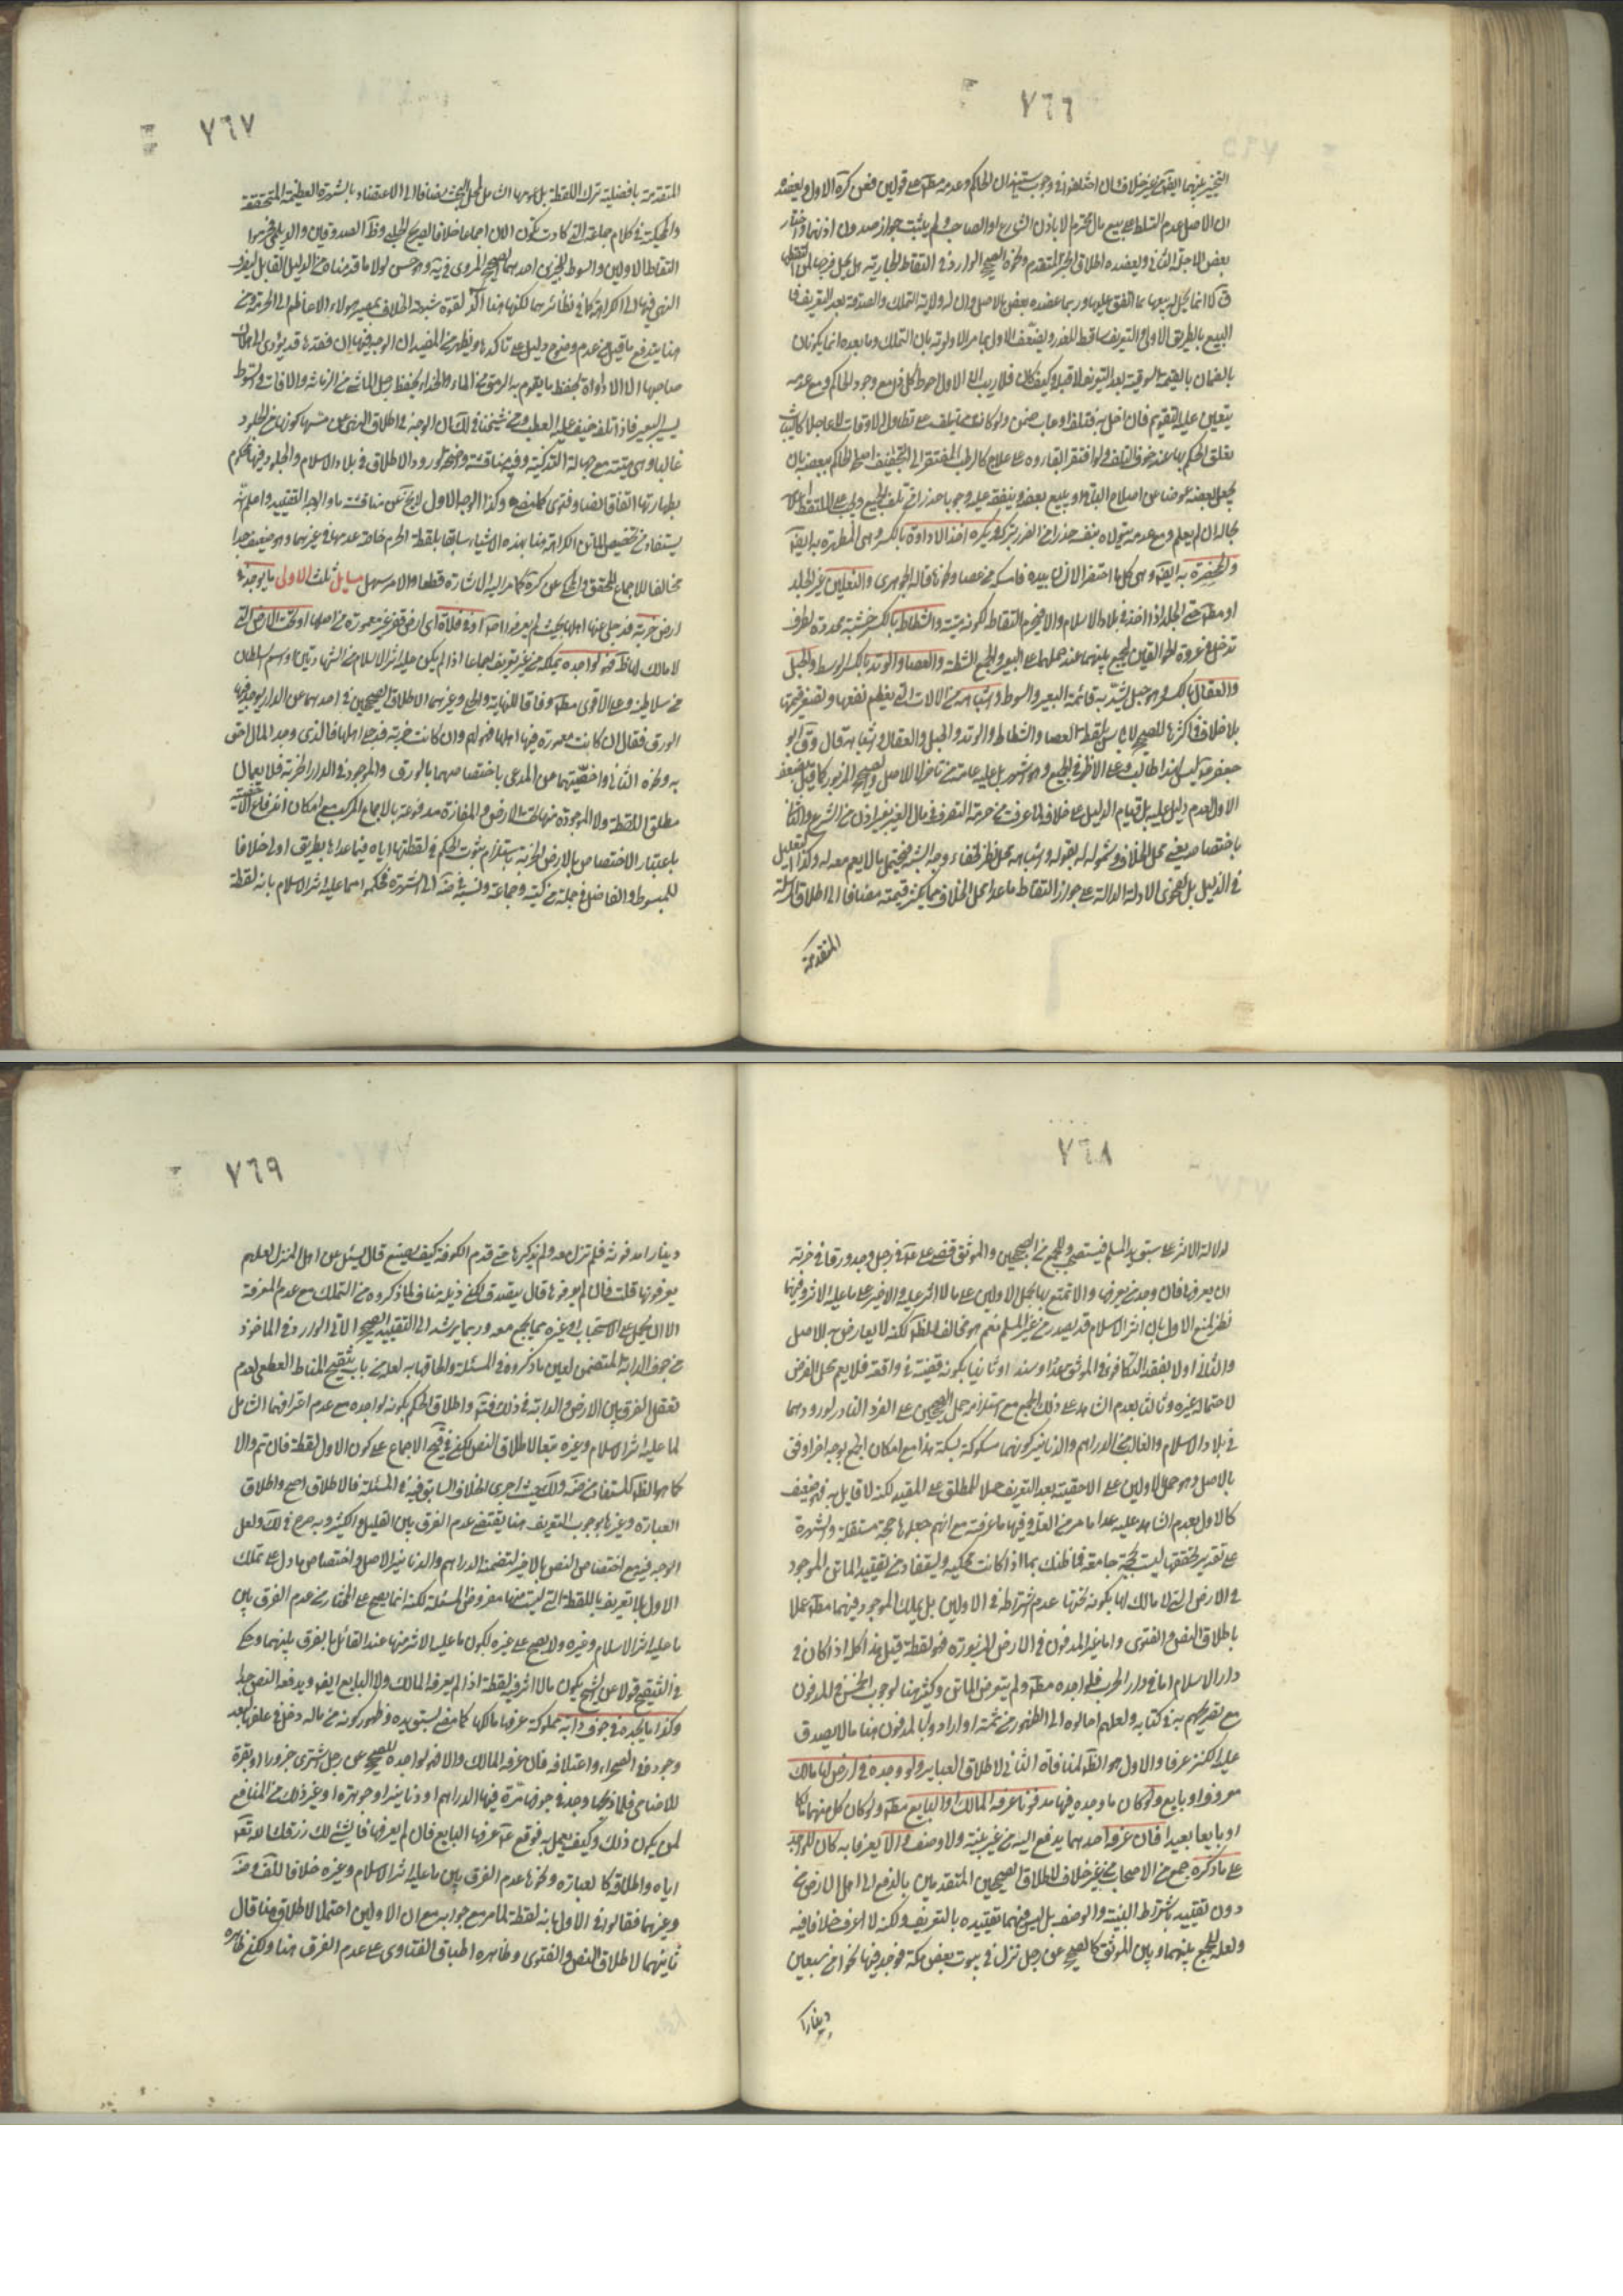 ٧٦٦
التخيير بينهما ايض من غير خلاف وان اختلفوا في وجوب استيذان الحاكم وعدمه مط على قولين فعن كرة الاول ويعضده
ان الاصل عدم التسلط على بيع مال محترم الا باذن الشارع او الصاحب ولم يثبت جواز صدوره دون اذنهما واختار
بعض الاجلة الثاني ويعضده اطلاق الخبر المتقدم ونحوه الصحيح الوارد في التقاط الجارية هل يحل فرجها لمن التقطها
ق لا انما يحل له بيعها بما انفق عليها وربما عضده بعض بالاصل وان له ولاية التملك والصدقة بعد التعريف فا
البيع بالطريق الاولى والتعريف ساقط للعذر ويضعف الاول بما مر والاولوية بان التملك وما بعده انما يكونان
بالضمان بالقيمة السوقية بعد التعريف لا قبله وكيف كان فلا ريب ان الاول احوط كل ذلك مع وجود الحاكم ومع عدمه
يتعين عليه التقويم فان اخل به فتلف او عاب ضمن ولو كان مما يتلف على تطاول الاوقات لا عاجلا كالثياب
يعلق الحكم بها عند خوف التلف ولو افتقر ابقاؤه على علاج كالرطب المفتقر الى التجفيف اصلحه الحاكم ببعضه بان
يجعل بعضه عوضا عن اصلاح الباقي او يبيع بعضه وينفقه عليه وجوبا حذرا من تلف الجميع ويجب على الملتقط اعلامه
بحاله ان لم يعلم ومع عدمه يتولاه بنفسه حذرا من الضرر بتركه ويكره اخذ الاداوة بالكسر وهي المطهرة به ايض
والمخصرة به ايض وهي كل ما اختصر الانسان بيده فامسكه من عصا ونحوها قاله الجوهري والنعلين غير الجلد
او مط حتى الجلد اذا اخذ في بلاد الاسلام والا فيحرم التقاطه لكونه ميتة والشظاظ بالكسر خشبة محددة لطرف
تدخل في عروة الجوالقين ليجمع بينهما عند حملهما على البعير والجمع اشظة والعصا والوتد بالكسر الوسط والحبل
والعقال بالكسر وهو حبل يشد به قائمة البعير والسوط واشباهه من الآلات التي يعظم نفعها وتصغر قيمتها
بلا خلاف في اكثرها للصحيح لا باس بلقطة العصا والشظاظ والوتد والحبل والعقال واشباهه قال وق ابو
جعفر ع ليس لهذا طالب وعلى الاظهر في الجميع وهو اشهر بل عليه عامة من تاخر للاصل والصحيح المزبور كما قيل ويضعف
الاول بعدم دليل عليه بل قيام الدليل على خلافه لما عرفت من حرمة التصرف في مال الغير بغير اذن من الشرع والثاني
باختصاصه بغير محل الخلاف وشموله له بقوله واشباهه محل نظر لخفاء وجه الشبه فيحتمل ما لا يعم معه له وكذا التعليل
في الذيل بل فحوى الادلة الدالة على جواز التقاط ما عدا محل الخلاف مما يكثر قيمته مضافا الى اطلاق المرسلة
المتقدمة
٧٦٧
المتقدمة بافضلية ترك اللقطة بل عمومها الشامل لمحل البحث مضافا الى الاعتضاد بالشهرة العظيمة المتحققة
والمحكية في كلام جماعة التي كادت تكون الآن اجماعا خلافا لصريح الحلبي وظ الصدوقين والديلمي فحرموا
التقاط الاولين والسوط للخبرين احدهما الصحيح المروي في يه وهو حسن لولا ما قدمناه من الدليل القابل لصرف
النهي فيهما الى الكراهة كما في نظائرهما لكنها هنا آكد لقوة شبهة الخلاف بمصير هؤلاء الاعاظم الى الحرمة ومن
هنا يندفع ما قيل من عدم وضوح دليل على تاكدها ويظهر من المفيد ان الوجه فيها ان فقدها قد يؤدي الى هلاك
صاحبها لان الاداوة تحفظ ما يقوم به الرمق من الماء والحذاء يحفظ رجل الماشي من الزمانة والآفات والسوط
يسير البعير فاذا تلف خيف عليه العطب وعن شيخنا في لك ان الوجه في اطلاق النهي عن مسها كونها من الجلود
غالبا وهي ميتة مع جهالة التذكية وفيه مناقشة واضحة لورود الاطلاق في بلاد الاسلام والجلود فيها محكوم
بطهارتها اتفاقا نصا وفتوى كما مضى وكذا الوجه الاول لا يخ عن مناقشة ما والوجه التقييد واعلم انه
يستفاد من تخصيص الماتن الكراهة هنا بهذه الاشياء وسابقا بلقطة الحرم خاصة عدمها في غيرهما وهو ضعيف جدا
مخالف للاجماع المحقق والمحكي عن كرة كما مر اليه الاشارة قطعا والامر سهل مسايل ثلث الاولى ما يوجد في
ارض خربة قد جلي عنها اهلها بحيث لم يعرفوا اصلا او في فلاة اي ارض قفر غير معمورة من اصلها او تحت الارض التي
لا مالك لها ظ فهو لواجده يتملكه من غير تعريف اجماعا اذا لم يكن عليه اثر الاسلام من الشهادتين او اسم سلطان
من سلاطينه وعلى الاقوى مط وفاقا للنهاية والحلي وغيرهما لاطلاق الصحيحين في احدهما عن الدار يوجد فيها
الورق فقال ان كانت معمورة فيها اهلها فهو لهم وان كانت خربة قد جلا اهلها فالذي وجد المال احق
به ونحوه الثاني واخصيتهما من المدعى باختصاصهما بالورق والموجود في الدار الخربة فلا يعمان
مطلق اللقطة ولا الموجودة منها تحت الارض والمفازة مدفوعة بالاجماع المركب مع امكان اندفاع اخصية
باعتبار الاختصاص بالارض الخربة باستلزام ثبوت الحكم في لقطتها اياه فيما عداها بطريق اولى خلافا
للمبسوط والفاضل في جملة من كتبه وجماعة ونسبه في ضة الى الشهرة فحكموا فيما عليه اثر الاسلام بانه لقطة
٧٦٨
لدلالة الاثر على سبق يد المسلم فيستصحب وللجمع بين الصحيحين والموثق قضى علي ع في رجل وجد ورقا في خربة
ان يعرفها فان وجد من يعرفها والا تمتع بها بحمل الاولين على ما لا اثر عليه والاخير على ما عليه الاثر وفيهما
نظر لمنع الاول بان اثر الاسلام قد يصدر من غير المسلم نعم هو مخالف للظ لكنه لا يعارض به الاصل
والثاني اولا بفقد التكافؤ في الموثق عددا وسندا وثانيا بكونه قضية في واقعة فلا يعم محل الفرض
لاحتماله غيره وثالثا بعدم الشاهد على ذلك الجمع مع استلزامه حمل الصحيحين على الفرد النادر لورودهما
في بلاد الاسلام والغالب في الدراهم والدنانير كونهما مسكوكة بسكته هذا مع امكان الجمع بوجه اخر اوفق
بالاصل وهو حمل الاولين على الاحقية بعد التعريف حملا للمطلق على المقيد لكنه لا قايل به فهو ضعيف
كالاول بعدم الشاهد عليه عدا ما مر من العلة وفيها ما عرفته مع انهم جعلوها حجة مستقلة والشهرة
على تقدير تحققها ليست بحجة جامعة فما ظنك بما اذا كانت محكية ويستفاد من تقييد الماتن الموجود
في الارض التي لا مالك لها بكونه تحتها عدم اشتراطه في الاولين بل يملك الموجود فيهما مط عملا
باطلاق النص والفتوى واما غير المدفون في الارض المزبورة فهو لقطة قيل هذا كله اذا كان في
دار الاسلام اما في دار الحرب فلواجده مط ولم يتعرض الماتن وكثير هنا لوجوب الخمس في المدفون
مع تصريحهم به في كتابه ولعلهم احالوه الى الظهور من ثمة او ارادوا بالمدفون هنا ما لا يصدق
عليه الكنز عرفا والاول هو الظ لمنافاة الثاني لاطلاق العباير ولو وجده في ارض لها مالك
معروف او بايع ولو كان ما وجده فيها مدفونا عرفه المالك او البايع مط ولو كان كل منهما مالكا
او بايعا بعيدا فان عرفه احدهما يدفع اليه من غير بينة ولا وصف والا يعرفا به كان للواجد
على ما ذكره جمع من الاصحاب من غير خلاف لاطلاق الصحيحين المتقدمين بالدفع الى اهل الارض من
دون تقييد باشتراط البينة والوصف بل ليس فيهما تقييده بالتعريف ولكنه لا اعرف خلافا فيه
ولعله للجمع بينهما وبين الموثق كالصحيح عن رجل نزل في بيوت بعض مكة فوجد فيها نحوا من سبعين
دينارا
٧٦٩
دينارا مدفونة فلم تزل معه ولم يذكرها حتى قدم الكوفة كيف يصنع قال يسئل عن اهل المنزل لعلهم
يعرفونها قلت فان لم يعرفوها قال يتصدق لكن ذيله مناف لما ذكروه من التملك مع عدم المعرفة
الا ان يحمل على الاستحباب او غيره مما يجمع معه وربما يرشد الى التقييد الصحيح الآتي الوارد في الماخوذ
من جوف الدابة المتضمن لعين ما ذكروه في المسئلة والحاقها به لعله من باب تنقيح المناط القطعي لعدم
تعقل الفرق بين الارض والدابة في ذلك فتم واطلاق الحكم بكونه لواجده مع عدم اعترافهما الشامل
لما عليه اثر الاسلام وغيره تبعا لاطلاق النص لكن في قيح الاجماع على كون الاول لقطة فان تم والا
كما هو الظ المستفاد من ضة ولك حيث اجرى الخلاف السابق فيه في المسئلة فالاطلاق اصح واطلاق
العبارة وغيرها بوجوب التعريف هنا يقتضي عدم الفرق بين القليل والكثير وبه صرح في لك ولعل
الوجه فيه مع اختصاص النص بالاخير لتضمنه الدراهم والدنانير الاصل واختصاص ما دل على تملك
الاول بلا تعريف باللقطة التي ليست منها مفروض المسئلة لكنه انما يصح على المختار من عدم الفرق بين
ما عليه اثر الاسلام وغيره ولا يصح على غيره لكون ما عليه الاثر منها عند القائل بالفرق بينهما وحكى
في التنقيح قولا عن الشيخ بكون ما لا اثر فيه لقطة اذا لم يعرفه المالك ولا البايع ايض ويدفعه النص جدا
وكذا ما يجده في جوف دابة مملوكة عرفها مالكها كما مضى لسبق يده وظهور كونه من ماله دخل في علفها لبعد
وجوده في الصحراء واعتلافه فان عرفه المالك والا فهو لواجده للصحيح عن رجل اشترى جزورا او بقرة
للاضاحي فلما ذبحها وجد في جوفها صرة فيها الدراهم او دنانير او جوهرة او غير ذلك من المنافع
لمن يكون ذلك وكيف يعمل به فوقع ع عرفها البايع فان لم يعرفها فالشئ لك رزقك الله تعالى
اياه واطلاقه كالعبارة ونحوها عدم الفرق بين ما عليه اثر الاسلام وغيره خلافا للف وضة
وغيرهما فقالوا في الاول بانه لقطة لما مر مع جوابه مع ان الاولين احتملا الاطلاق هنا قال
ثانيهما لاطلاق النص والفتوى وظاهره اطباق الفتاوى على عدم الفرق هنا ولكن ظاهره